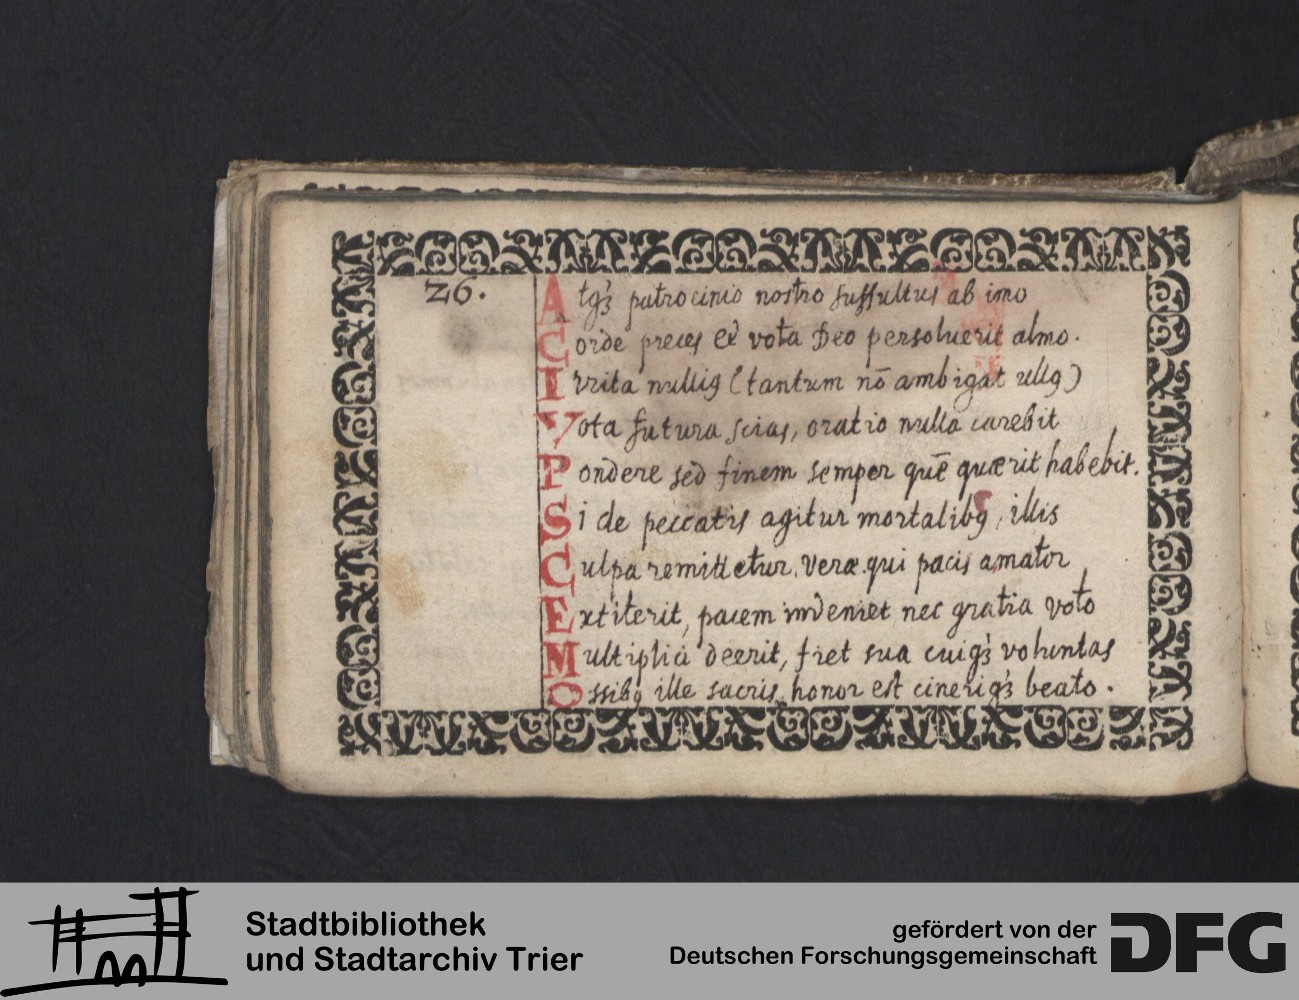 26.
Atqꝫ patrocinio nostro suffultus ab imo
Corde preces et vota Deo persoluerit almo.
Irrita nulliꝰ (tantum nō ambigat ullꝰ)
Vota futura scias, oratio nulla carebit
Pondere sed finem semper quē quærit habebit.
Si de peccatis agitur mortalibꝰ, illis
Culpa remittetur, veræ qui pacis amator
Extiterit, pacem inveniet nec gratia voto
Multiplici deerit, fiet sua cuiqꝫ voluntas
Ossibꝰ ille sacris, honor est cineriqꝫ beato.
Stadtbibliothek
und Stadtarchiv Trier
gefördert von der
Deutschen Forschungsgemeinschaft
DFG